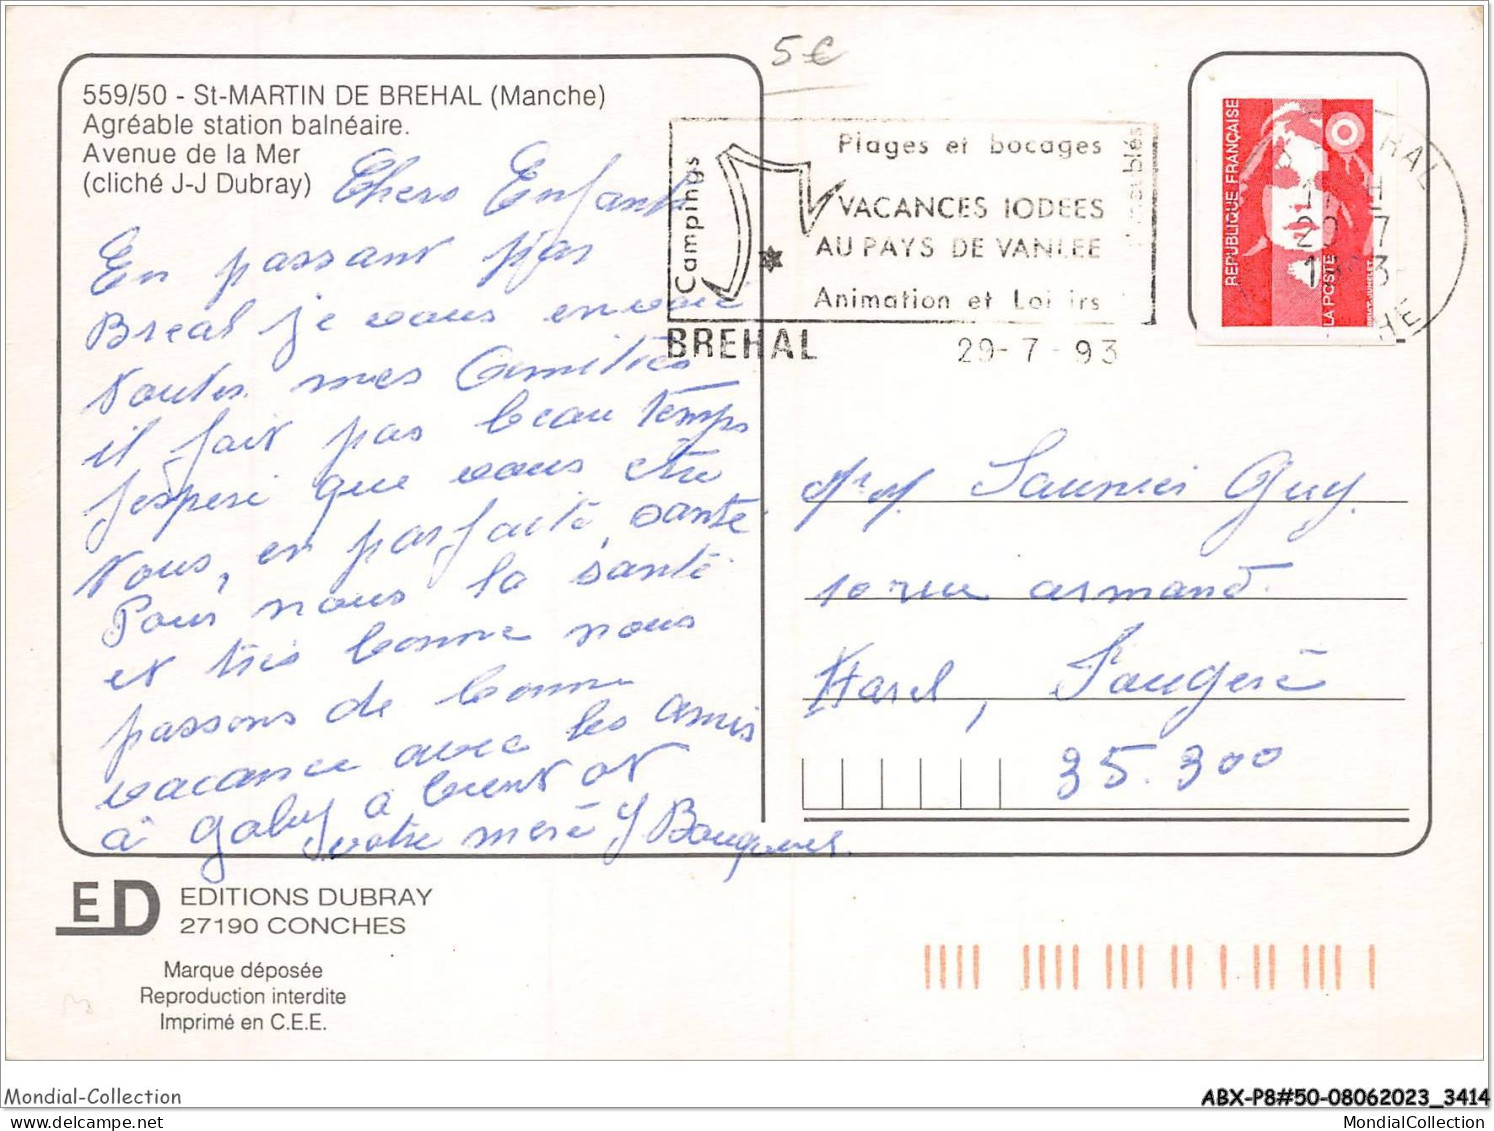 5€
559/50 - St-MARTIN DE BREHAL (Manche)
Agréable station balnéaire.
Avenue de la Mer
(cliché J-J Dubray)
Chers Enfants
En passant pas
Breal je vous envoie
toutes mes Amitiés
il fait pas beau temps
j'esperé que vous etre
tous, en parfaité, santé
Pour nous la santé
et tris bonne nous
passons de bonne
vacance avec les amis
à Gaby a bient ot
votre meré
Campings
Meublés
Plages et bocages
VACANCES IODEES
AU PAYS DE VANLEE
Animation et Loisirs
BREHAL
29-7-93
REPUBLIQUE FRANÇAISE
LA POSTE
Mr M. Saunier Guy.
10 rue armand.
Harel, Fougeré
35.300
ED
EDITIONS DUBRAY
27190 CONCHES
Marque déposée
Reproduction interdite
Imprimé en C.E.E.
Mondial-Collection
ABX-P8#50-08062023_3414
MondialCollection